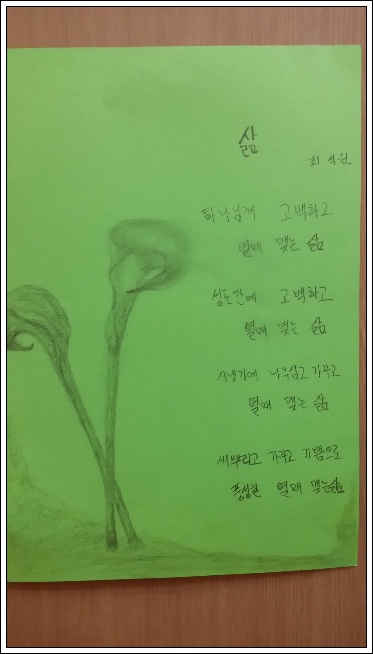 삶
최석원
하나님께 고백하고
열매 맺는 삶
성도간에 고백하고
열매 맺는 삶
시냇가에 나무심고 가꾸고
열매 맺는 삶
씨뿌리고 가꾸고 기쁨으로
풍성한 열매 맺는삶